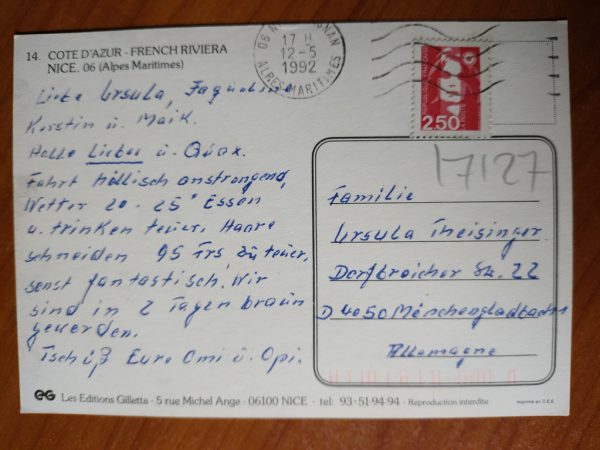 14. COTE D'AZUR - FRENCH RIVIERA
NICE. 06 (Alpes Maritimes)
17 H
12-5
1992
ALPES MARITIMES
2,50
17127
Liebe Ursula, Faqueline
Kerstin u. Maik.
Hallo Lieber u. Quax.
Fahrt höllisch anstrengend,
Wetter 20 - 25° Essen
u. trinken teuer, Haare
schneiden 95 Frs zu teuer,
sonst fantastisch. Wir
sind in 2 Tagen braun
geworden.
Tschüß Eure Omi ü. Opi.
Familie
Ursula Theisinger
Dorfbroicher Str. 22
D 4050 Mönchengladbach 1
Allemagne
EG Les Editions Gilletta - 5 rue Michel Ange - 06100 NICE - tel: 93-51-94-94 - Reproduction interdite
Imprimé en C.E.E.